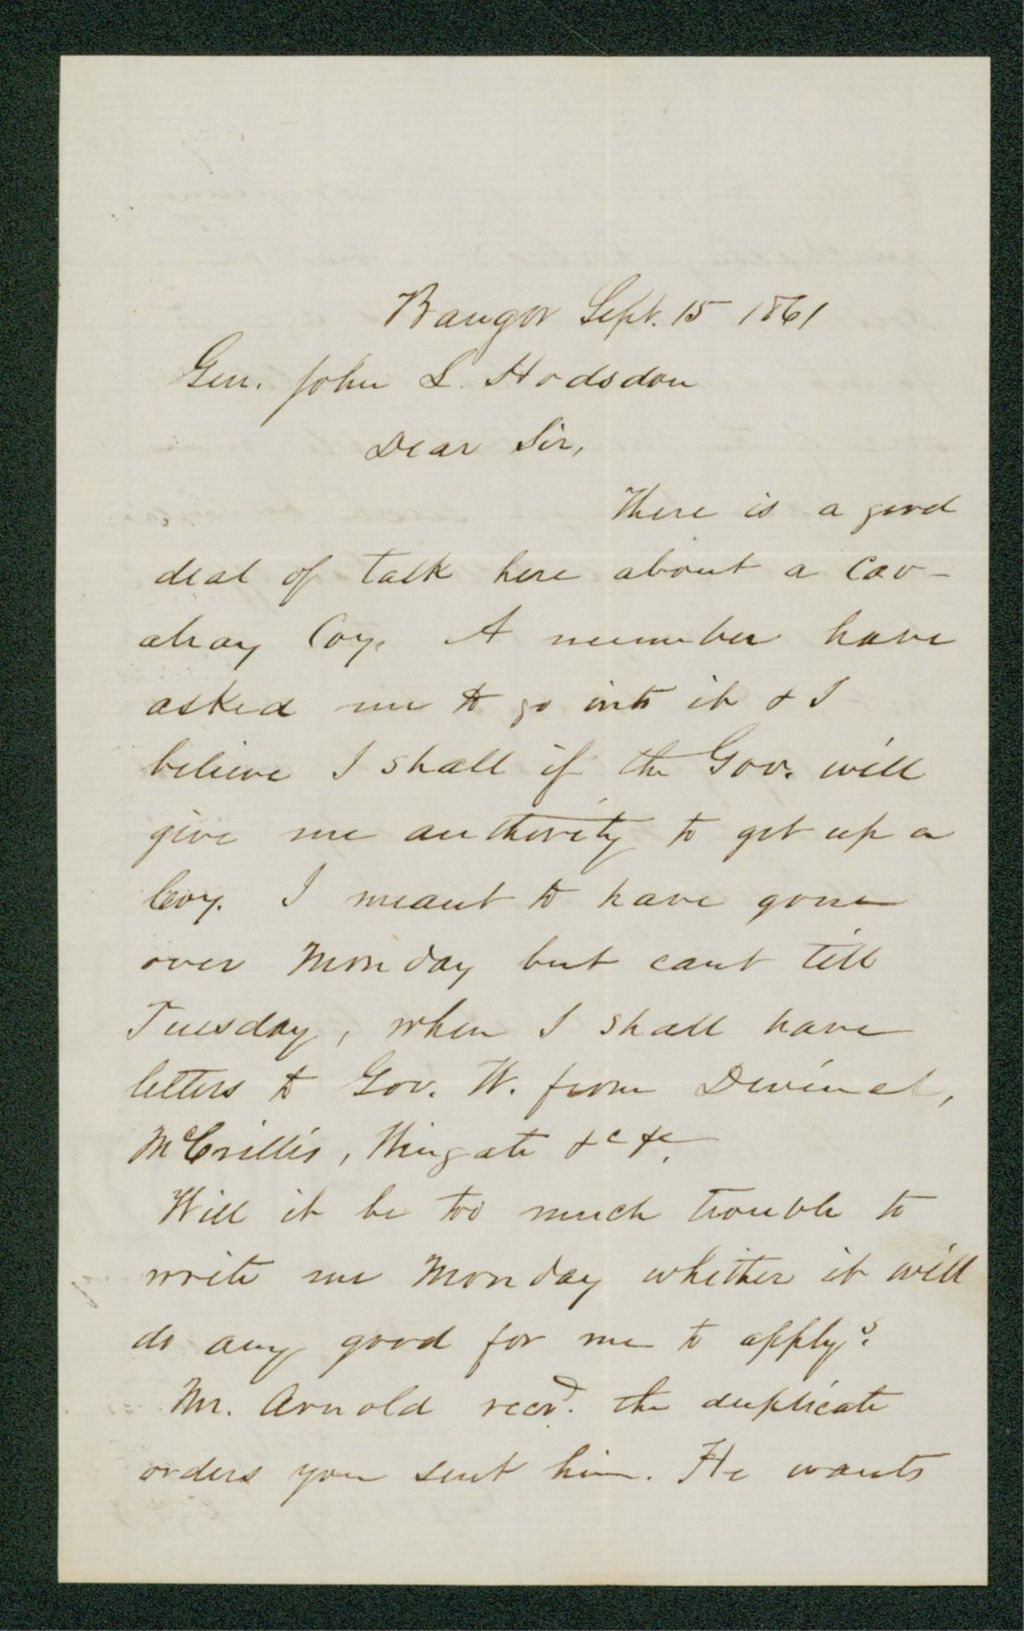 Bangor Sept. 15 1861
Gen. John L. Hodsdon
Dear Sir,
There is a good
deal of talk here about a Cav-
alray Coy. A number have
asked me to go into it & I
believe I shall if the Gov. will
give me authority to get up a
Coy. I meant to have gone
over Monday but cant till
Tuesday, when I shall have
letters to Gov. W. from Dwinel,
McCrillis, Wingate &c &c.
Will it be too much trouble to
write me Monday whether it will
do any good for me to apply?
Mr. Arnold recd. the duplicate
orders you sent him. He wants